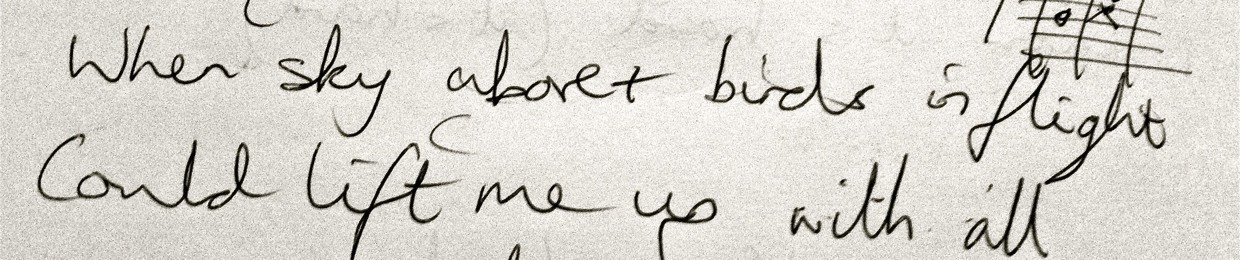 When sky above + birds in flight
Could lift me up with all